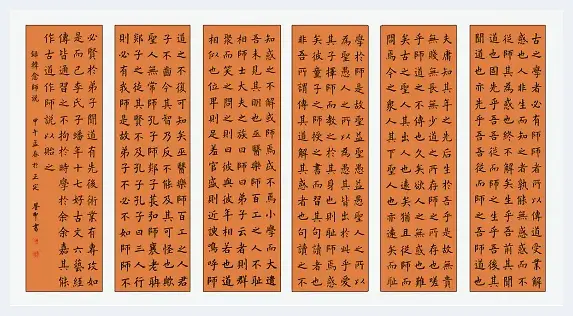 古之學者必有師師者所以傳道受業解
惑也人非生而知之者孰能無惑惑而不
從師其爲惑也終不解矣生乎吾前其聞
道也固先乎吾吾從而師之生乎吾後其
聞道也亦先乎吾吾從而師之吾師道也
夫庸知其年之先后生於吾乎是故無貴
無賤無長無少道之所存師之所存也嗟
乎師道之不傳也久矣欲人之無惑也難
矣古之聖人其出人也遠矣猶且從師而
問焉今之衆人其下聖人也亦遠矣而恥
學於師是故聖益聖愚益愚聖人之所以
為聖愚人之所以為愚其皆出於此乎愛
其子擇師而教之於其身也則恥師焉惑
矣彼童子之師授之書而習其句讀者也
非吾所謂傳其道解其惑者也句讀之不
知惑之不解或師焉或不焉小學而大遺
吾未見其明也巫醫樂師百工之人不恥
相師士大夫之族曰師曰弟子云者則群
聚而笑之問之則曰彼與彼年相若也道
相似也位卑則足羞官盛則近諛嗚呼師
道之不復可知矣巫醫樂師百工之人君
子不齒今其智乃反不能及其可怪也歟
聖人無常師孔子師郯子萇弘師襄老聃
郯子之徒其賢不及孔子孔子曰三人行
則必有我師是故弟子不必不如師師不
必賢於弟子聞道有先後術業有專攻如
是而已李氏子蟠年十七好古文六藝經
傳皆通習之不拘於時學於余余嘉其能
作古道作師說以貽之
錄韓愈師說 甲午孟春於正定 書